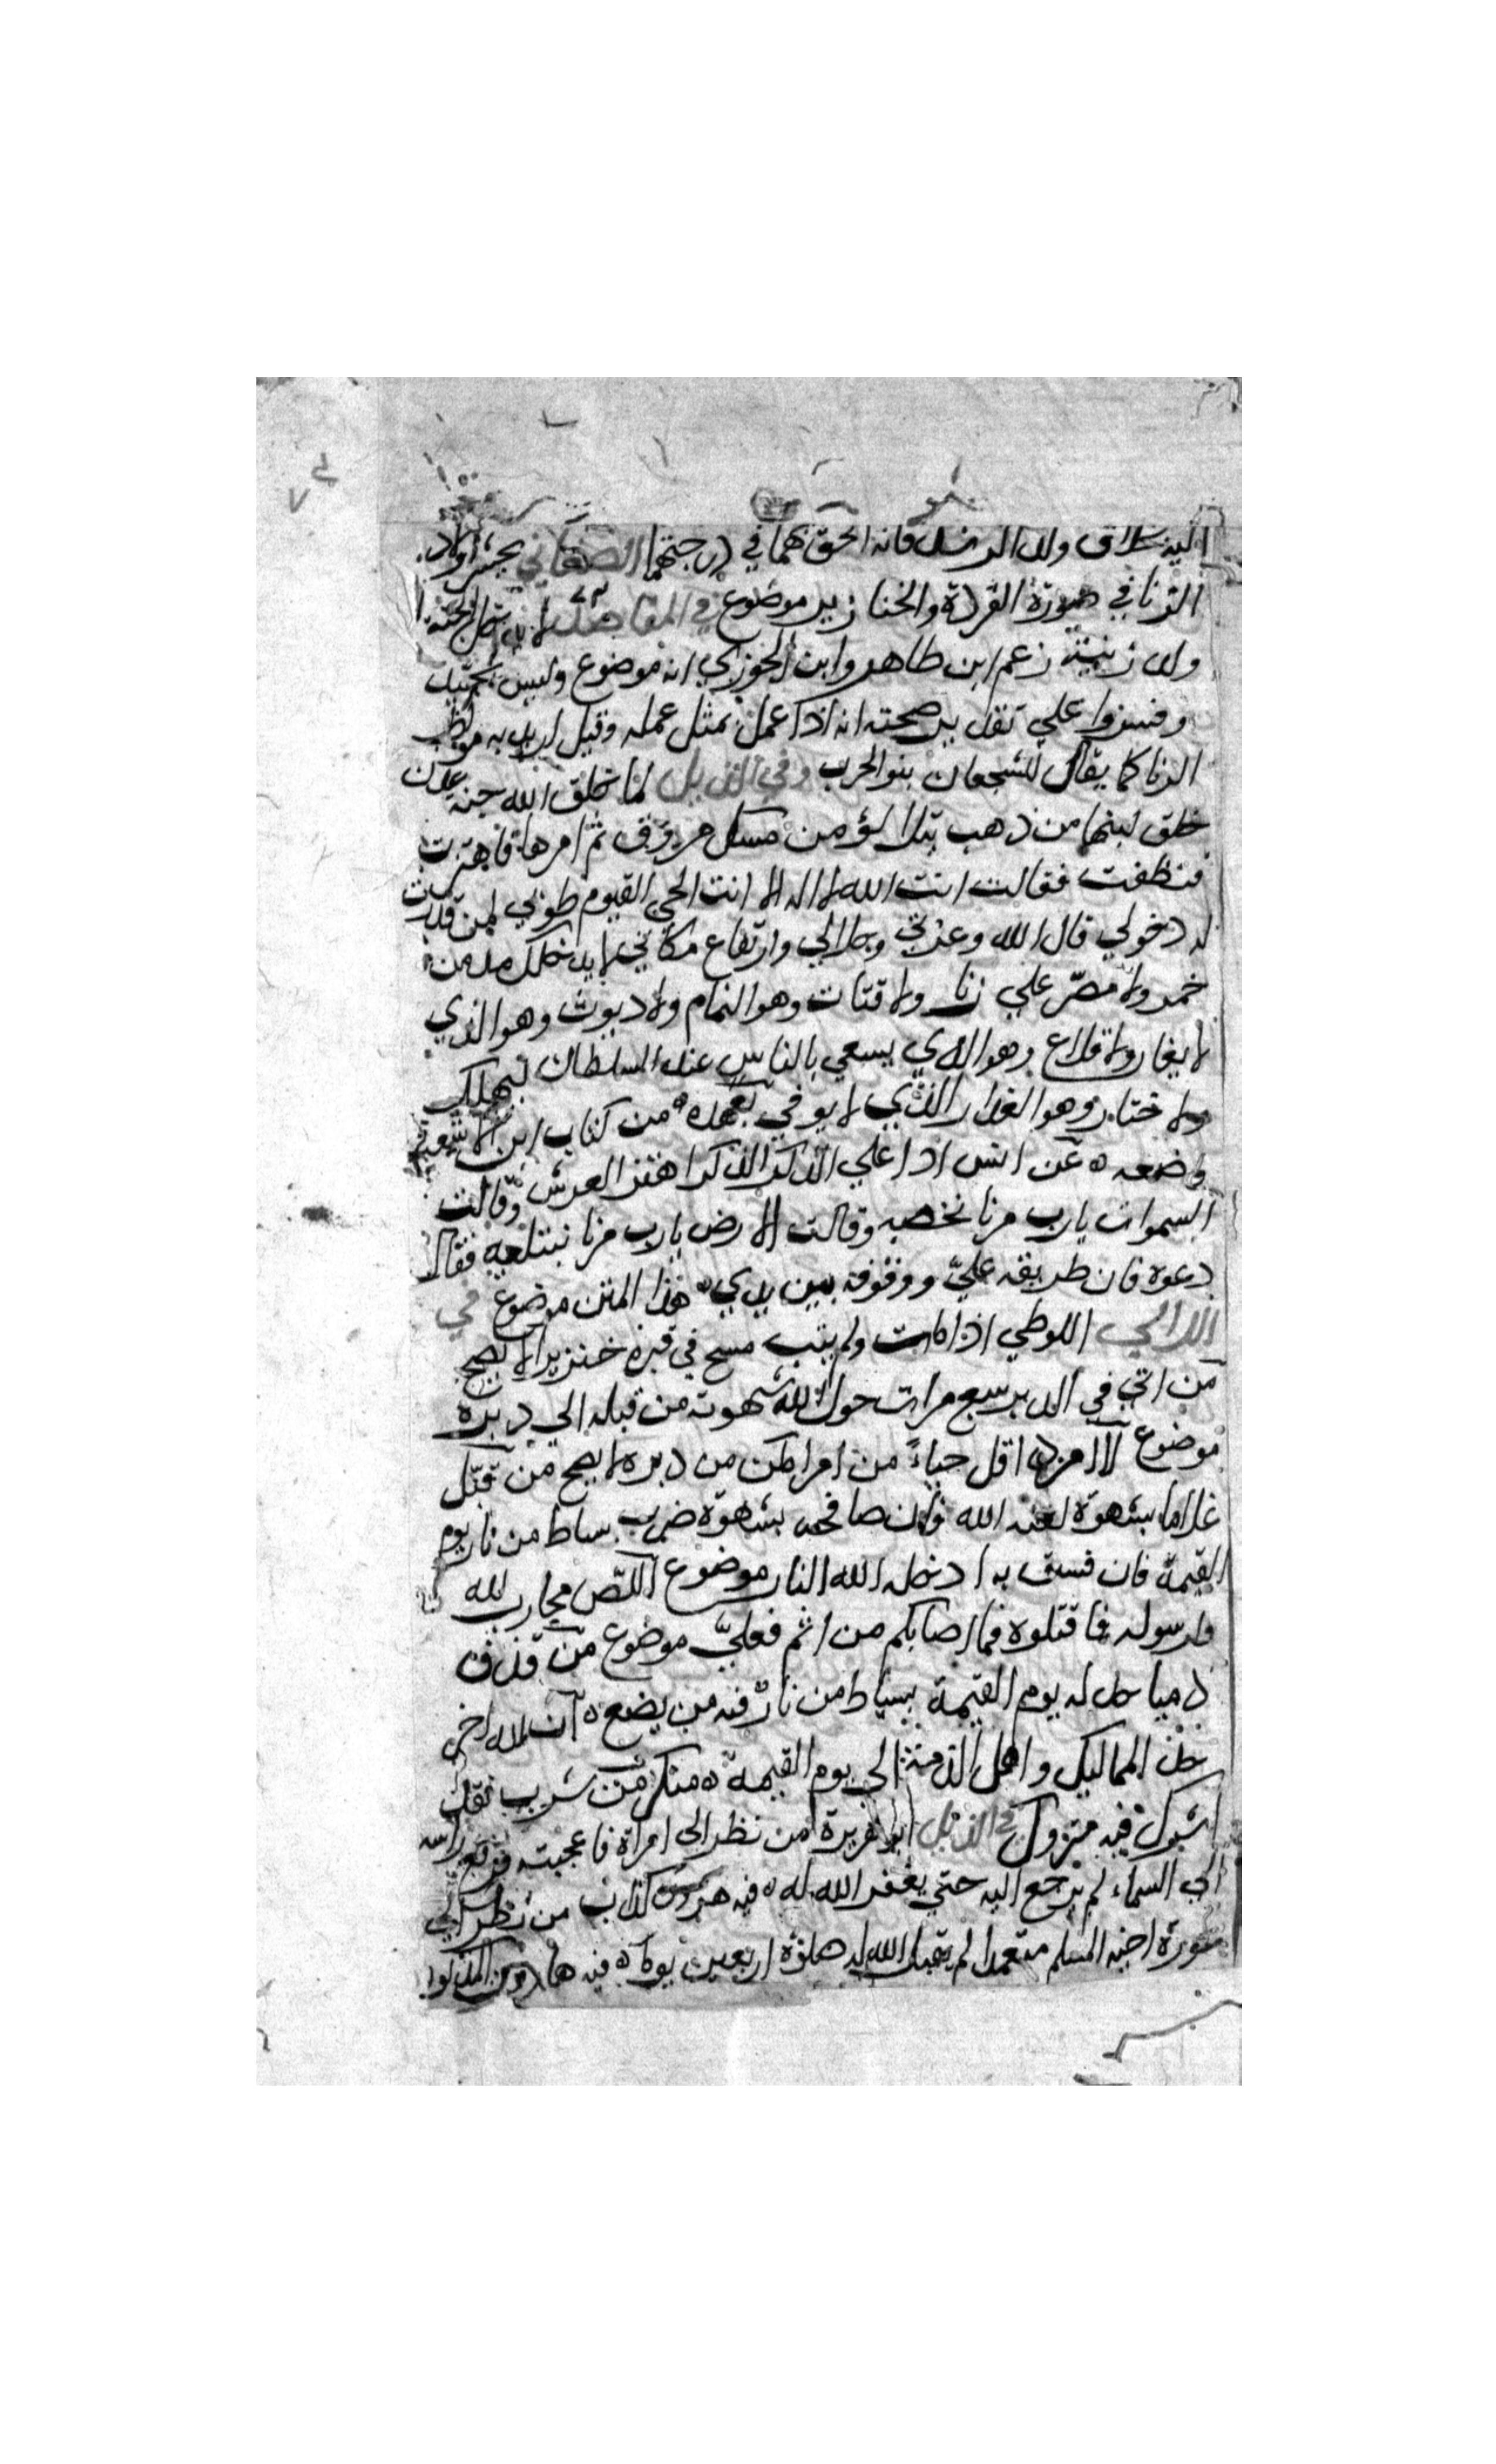 اليه خلاق ولد الرشد فانه الحق بهما في درجتهما الصغاني يحشر اولاد
الزنا في صورة القردة والخنازير موضوع في المقاصد لا يدخل الجنة
ولد زنية زعم ابن طاهر وابن الجوزي انه موضوع وليس بجيد
وفسروا علي تقدير صحته انه اذا عمل بمثل عمله وقيل اريد به مواظب
الزنا كما يقال للشجعان بنو الحرب وفي الذيل لما خلق الله جنة عدن
خلق لبنها من ذهب يتلالؤ من مسك مدوف ثم امرها فاهتزت
فنطقت فقالت انت الله لا اله الا انت الحي القيوم طوبي لمن قدرت
له دخولي قال الله وعزتي وجلالي وارتفاع مكاني لا يدخلك مدمن
خمر ولا مصر علي زنا ولا قتات وهو النمام ولا ديوث وهو الذي
لا يغار ولا قلاع وهو الذي يسعي بالناس عند السلطان ليهلك
ولا ختار وهو الغدار الذي لا يوفي بعهده من كتاب ابن الاشعث
وضعه ه عن انس اذا علي الذكر الذكر اهتز العرش وقالت
السموات يا رب مرنا نحصبه وقالت الارض يا رب مرنا نبتلعه فقال
دعوه فان طريقه علي ووقوفه بين يدي هذا المتن موضوع في
اللالي اللوطي اذا مات ولم يتب مسخ في قبره خنزيرا لا يصح
من اتي في الدبر سبع مرات حول الله شهوته من قبله الي دبره
موضوع الامرد اقل حياء من امراه مكن من دبره لا يصح من قبل
غلاما بشهوة لعنه الله وان صافحه بشهوة ضرب بسياط من نار يوم
القيمة فان فسق به ادخله الله النار موضوع اللص محارب لله
ولرسوله فاقتلوه فما اصابكم من اثم فعلي موضوع من قذف
ذميا حد له يوم القيمة بسياط من نار فيه من يضع ه ان الله اخر
حد المماليك واهل الذمة الي يوم القيمة ه منكر من شرب نقل
اشرك فيه متروك في الذيل ابو هريرة من نظر الي امراة فاعجبته فرفع راسه
الي السماء لم يرجع اليه حتي يغفر الله له ه فيه كذاب من نظر الي
عورة اخيه المسلم متعمدا لم يقبل الله له صلوة اربعين يوما ه فيه المذكور